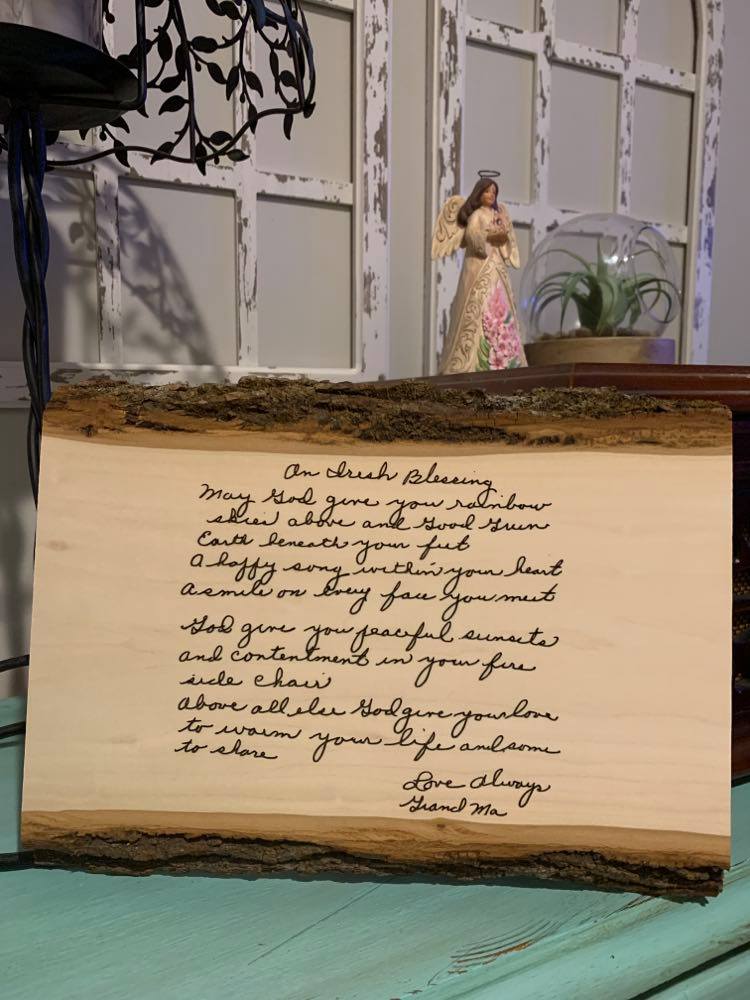 An Irish Blessing
May God give you rainbow
skies above and Good Green
Earth beneath your feet
A happy song within your heart
A smile on every face you meet
God give you peaceful sunsets
and contentment in your fire
side chair
Above all else God give your love
to warm your life and some
to share
Love Always
Grand Ma